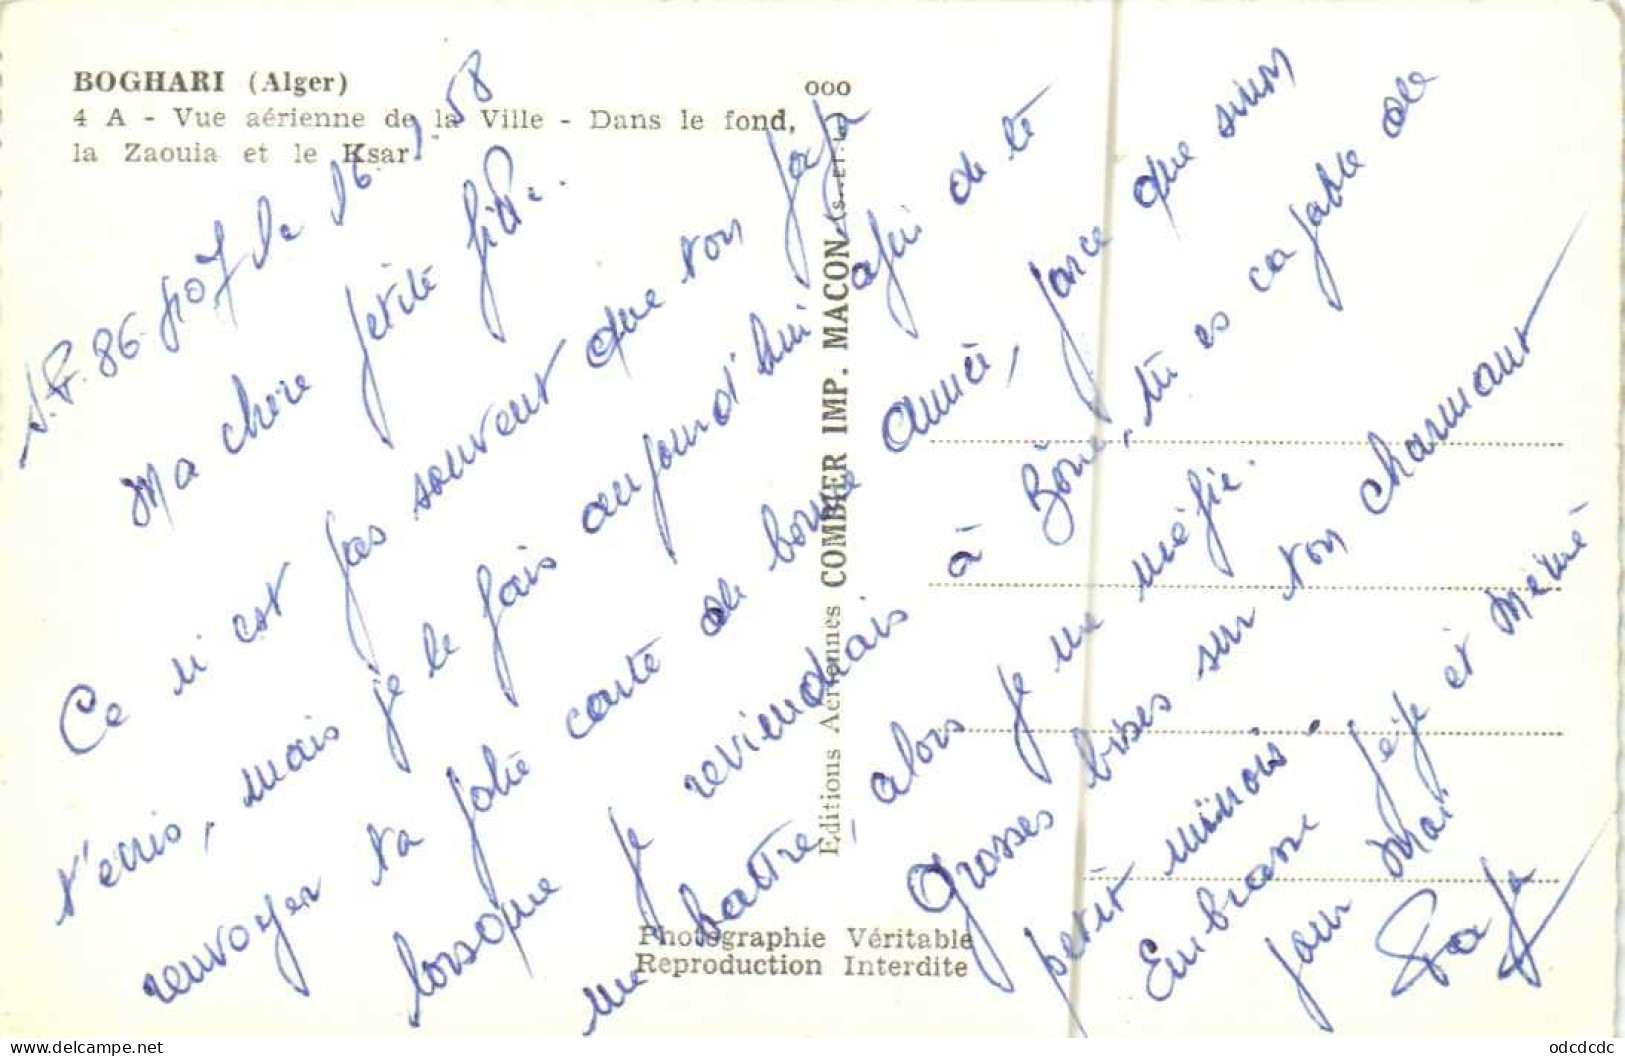 BOGHARI (Alger)
4 A - Vue aérienne de la Ville - Dans le fond,
la Zaouia et le Ksar
ooo
Editions Aeriennes COMBIER IMP. MACON (S.-ET-L.)
Photographie Véritable
Reproduction Interdite
S.P. 86.407 le 16.1.58
Ma chère petite fille.
Ce n'est pas souvent que ton papa
t'écris, mais je le fais aujourd'hui afin de te
renvoyer ta jolie carte de bonne année, parce que sinon
lorsque je reviendrais à Bône, tu es capable de
me battre, alors je me méfie.
Grosses bises sur ton charmant
petit minois.
Embrasse pépé et mémé
pour moi
Papa
odcdcdc
www.delcampe.net